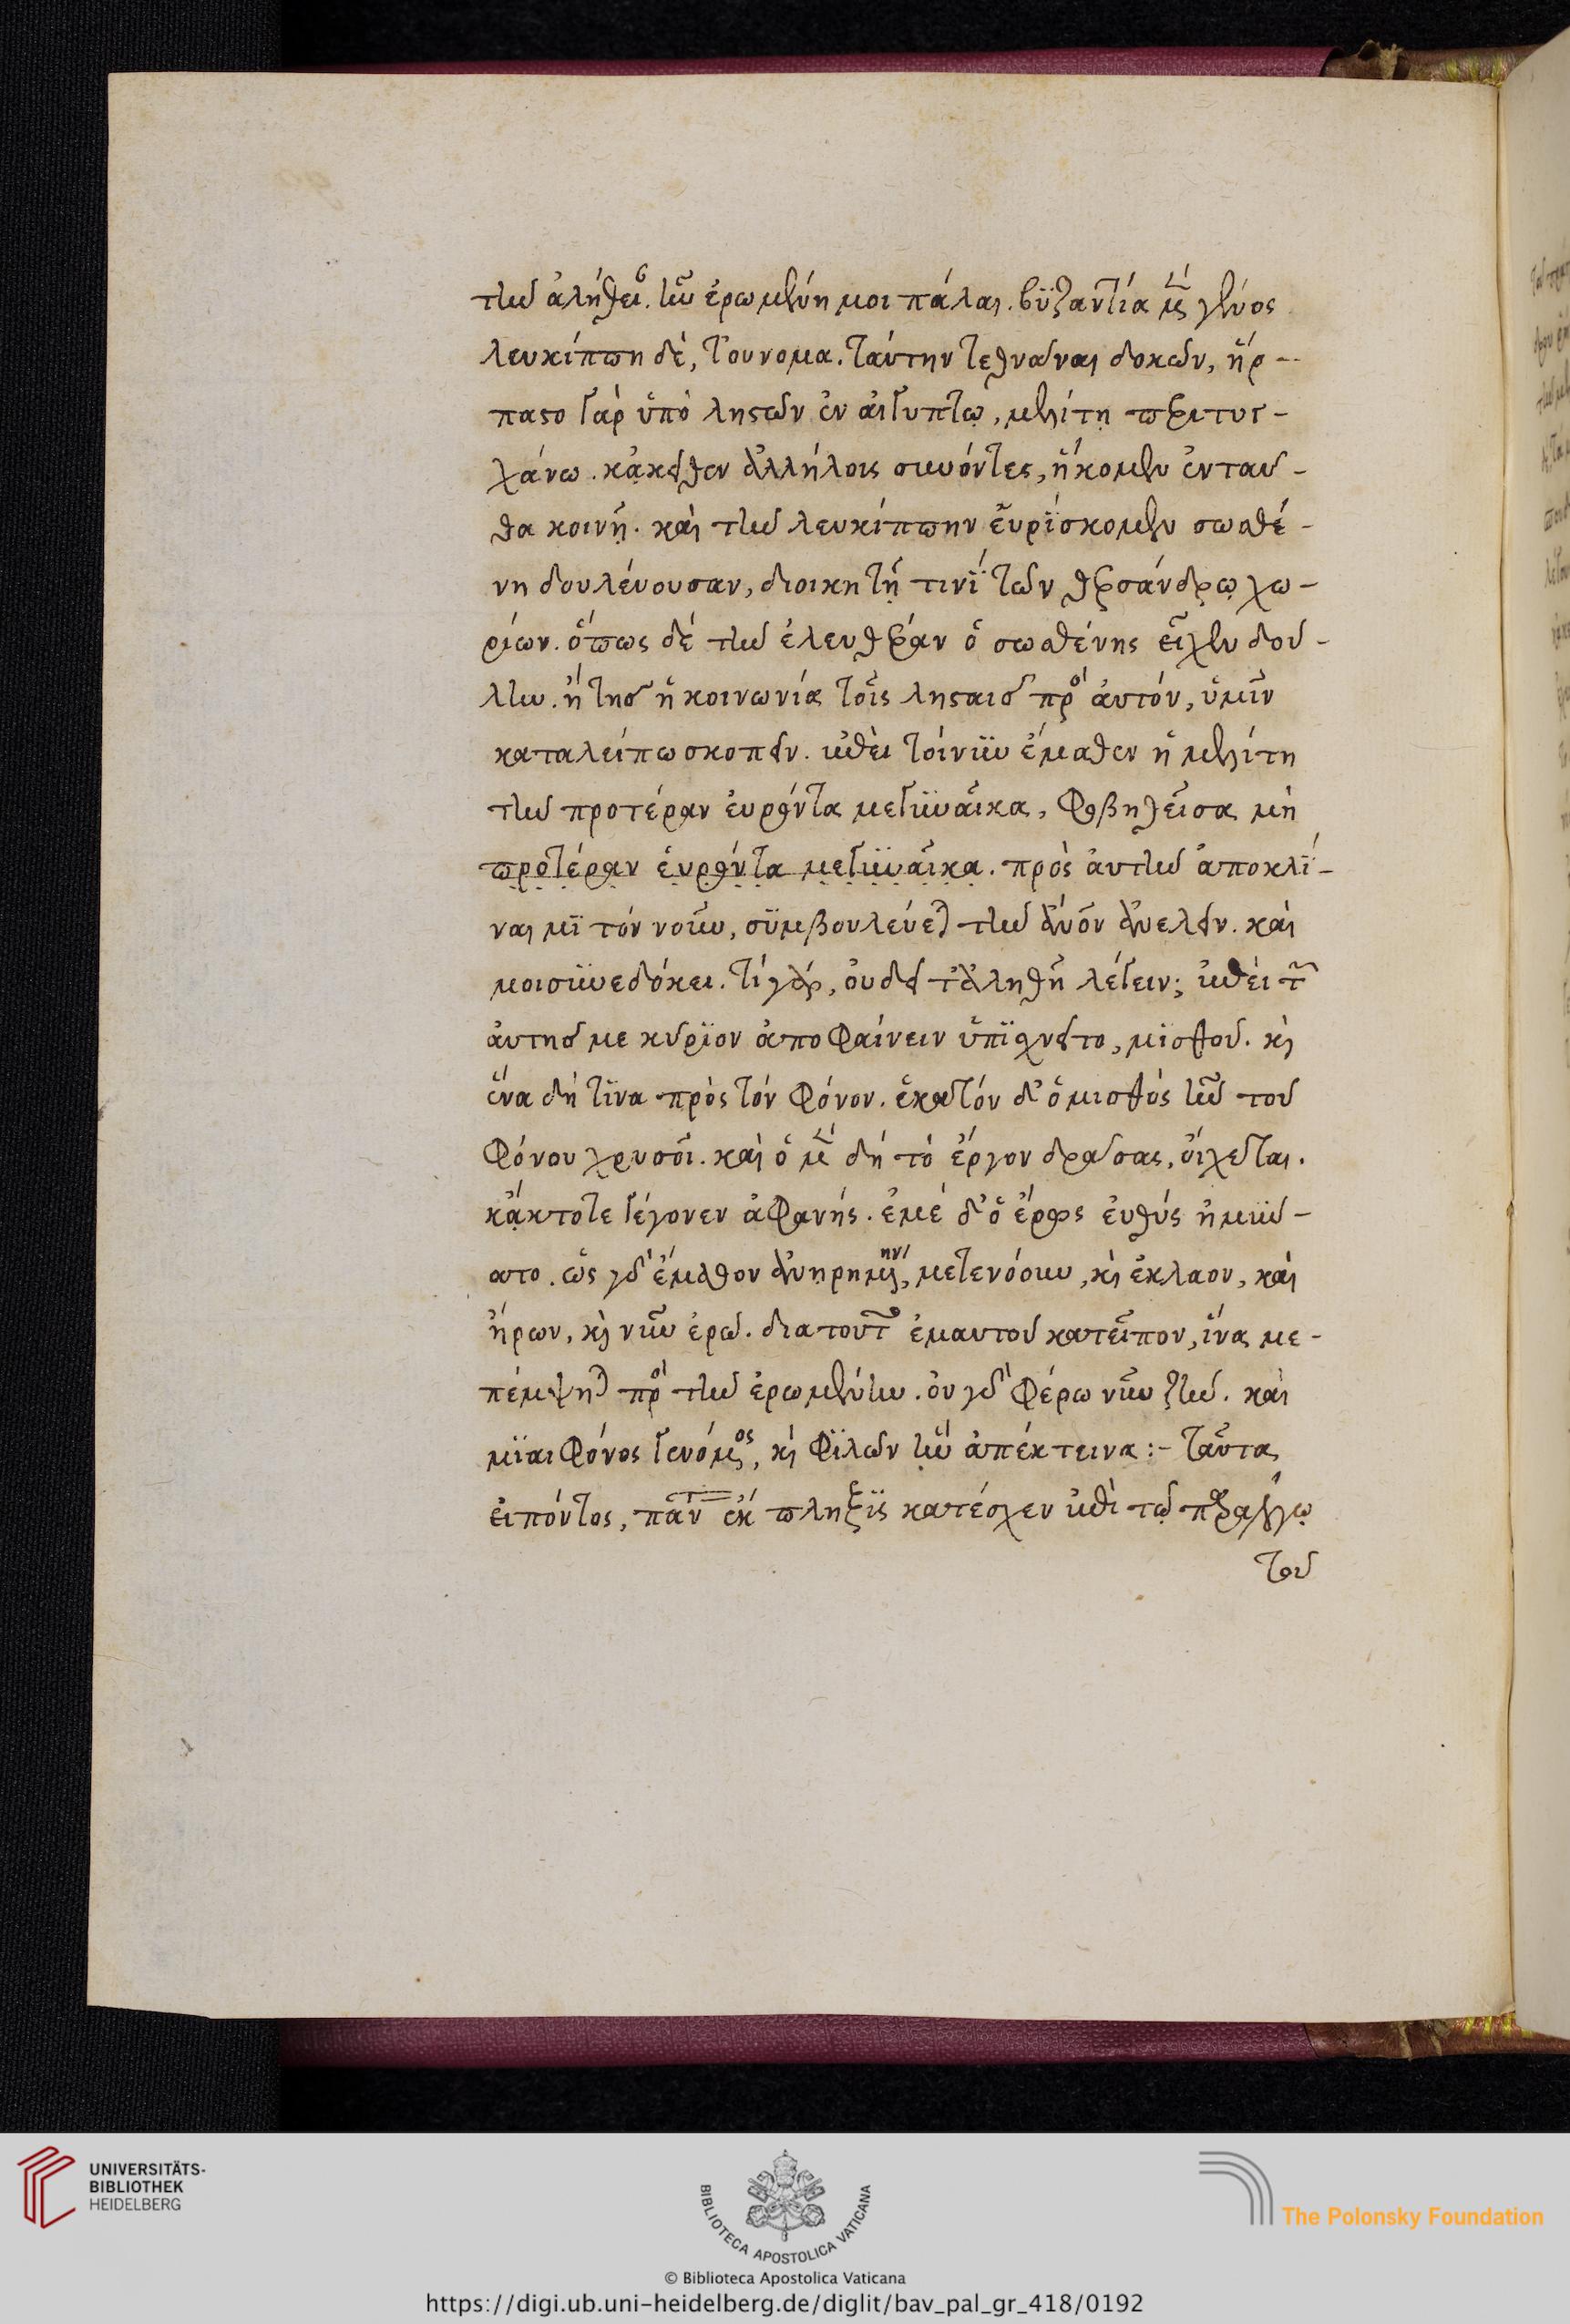 τὴν ἀλήθειαν. ἦν ἐρωμένη μοι πάλαι. βϋζαντία μὲν γένος
λευκίππη δὲ, τοὔνομα. ταύτην τεθνᾶναι δοκῶν, ἥρ-
παστο γὰρ ὑπὸ ληστῶν ἐν αἰγύπτῳ, μελίτῃ περιτυγ-
χάνω. κἀκεῖθεν ἀλλήλοις συνόντες, ἥκομεν ἐνταῦ-
θα κοινῇ. καὶ τὴν λευκίππην εὑρΐσκομεν σωσθέ-
νη δουλεύουσαν, διοικητῇ τινΐ τῶν θερσάνδρῳ χω-
ρίων. ὅπως δὲ τὴν ἐλευθέραν ὁ σωσθένης εἶχεν δού-
λην. ἤ τησ ἡ κοινωνία τοῖς λησταισ πρὸς αὐτόν, ὑμῖν
καταλείπω σκοπεῖν. ἐπεὶ τοίνϋν ἔμαθεν ἡ μελίτη
τὴν προτέραν εὑρόντα με γϋναῖκα, φοβηθεῖσα μὴ
προτέραν εὑρόντα με γϋναῖκα. πρὸς αὐτὴν ἀποκλΐ-
ναι μϊ τὸν νοῦν, σϋμβουλεύεται τὴν ἄνον ἀνελεῖν. καὶ
μοι σϋνεδόκει. τί γὰρ, οὐ δεῖ τἀληθῆ λέγειν; ἐπεὶ τῶν
αὐτησ με κύρϊον ἀποφαίνειν ὑπϊσχνεῖτο, μϊσθοῦ. καὶ
ἕνα δή τϊνα πρὸς τὸν φόνον. ἑκατὸν δ' ὁ μισθὸς ἦν τοῦ
φόνου χρυσοῖ. καὶ ὁ μὲν δὴ τὸ ἔργον δράσας, οἴχεται.
κἄκτοτε γέγονεν ἀφανής. ἐμὲ δ' ὁ ἔρως εὐθὺς ἠμύν-
ατο. ὡς γὰρ ἔμαθον ἀνῃρημένην, μετενόουν, καὶ ἔκλαον, καὶ
ἤρων, καὶ νῦν ἐρῶ. διατοῦτο ἐμαυτοῦ κατεῖπον, ἵνα με-
πέμψητε πρὸς τὴν ἐρωμένην. οὐ γὰρ φέρω νῦν ζῆν. καὶ
μϊαιφόνος γενόμενος, καὶ φϊλῶν ἣν ἀπέκτεινα :- ταῦτα
εἰπόντος, πάντας ἐκ πληξϊς κατέσχεν ἐπὶ τῷ παραλόγῳ
τοῦ
UNIVERSITÄTS-
BIBLIOTHEK
HEIDELBERG
BIBLIOTECA APOSTOLICA VATICANA
The Polonsky Foundation
© Biblioteca Apostolica Vaticana
https://digi.ub.uni-heidelberg.de/diglit/bav_pal_gr_418/0192